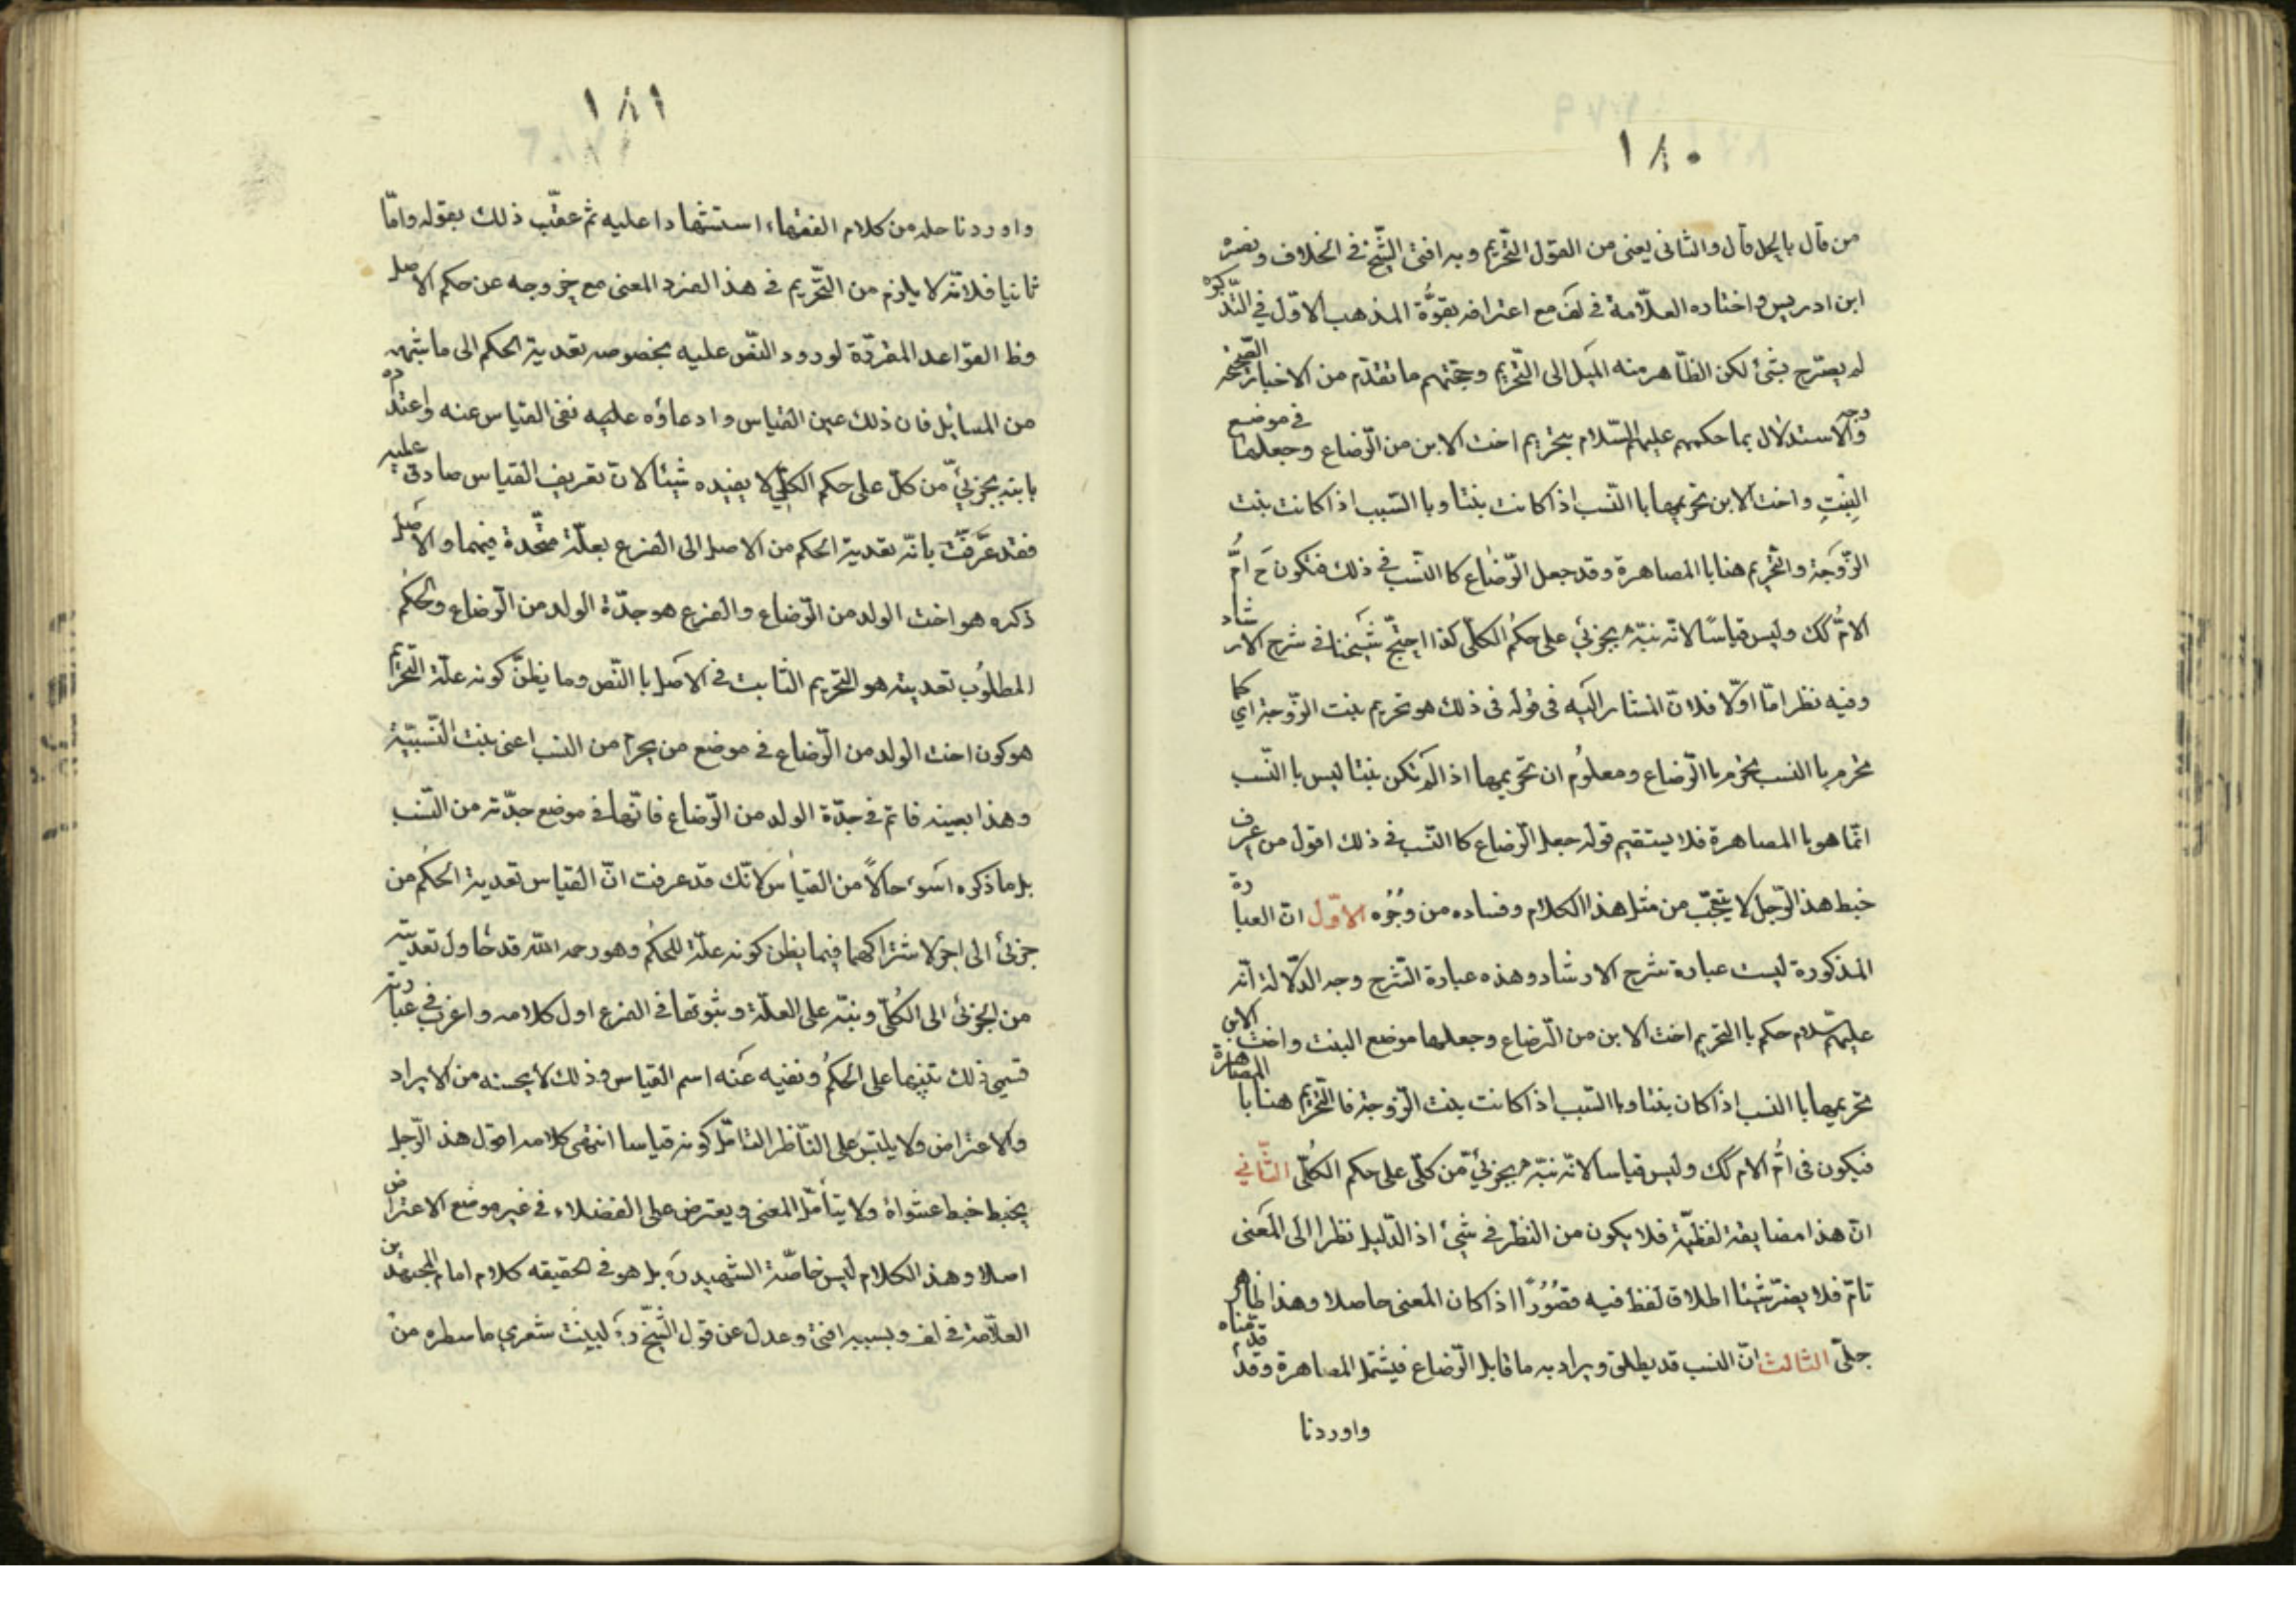 ١٨٠
من قال بالحل قال والثانى يعنى من القول التّحريم وبه افتى الشّيخ فى الخلاف ونصره
ابن ادريس واختاره العلّامة فى لف مع اعترافه بقوّة المذهب الاوّل في التّذكرة
لم يصرّح بشئ لكن الظّاهر منه الميل الى التّحريم وحجّتهم ما تقدّم من الاخبار الصّحيحه
وجه والاستدلال بما حكمهم عليهم السّلام بتحريم اخت الابن من الرّضاع وجعلها فى موضع
البِنْتِ واخت الابن تحريمها با النّسب اذا كانت بنتا وبا السّبب اذا كانت بنت
الزّوجَة والتّحريم هنا با المصاهرة وقد جعل الرّضاع كا النّسب فى ذلك فتكون حَ امّ
الامّ كك وليس قياسًا لانّه نبّه بجزئي على حكُم الكلّى كذا احتجّ شيَخنا فى شرح الارشاد
وفيه نظر امّا اوّلا فلانّ المشار اليَه فى قوله فى ذلك هو تحريم بنت الزّوجة اي كما
تحرم با النسب تحرم با الرّضاع ومعلوُم ان تحريمها اذا لم تكن بنتا ليس با النّسب
انّما هو با المصاهرة فلا يستقيم قوله جعل الرّضاع كا النّسب فى ذلك اقول من عرف
خبط هذ الرّجل لا يتعجّب من مثل هذا الكلام وفساده من وُجُوه الاوّل انّ العبارة
المذكورة ليست عبارة شرح الارشاد وهذه عبارة الشّرح وجه الدّلالة انّه
عليهم السّلام حكم با التحريم اخت الابن من الرّضاع وجعلها موضع البنت واخت الابن
تحريمها با النسب اذا كان بنتا وبا السّبب اذا كانت بنت الزّوجة فا التّحريم هنا با المصاهرة
فيكون فى امُّ الام كك وليس قياسا لانّه نبّه بجزئيّ من كلّى على حكم الكُلّى الثّاني
انّ هذا مضايقة لفظيّة فلا يكون من النظر فى شئ اذ الدّليل نظرا الى المَعنى
تامّ فلا يضرّ شيئا اطلاق لفظ فيه قصُوُرًا اذا كان المَعنى حاصلا وهذا ظاهر
جلىّ الثالث انّ النسب قد يطلق ويراد به ما قابل الرّضاع فيشمل المصاهرة وقد قدّمناه
واوردنا
١٨١
واوردنا جلد من كلام الفقهاء استشهادا عليه ثم عقّب ذلك بقوله وامّا
ثانيا فلانّه لا يلزم من التّحريم فى هذ الفرد المعنى مع خروجه عن حكم الاصل
وظ القواعد المقرّرة لورود النّص عليه بخصوصه تعدية الحكم الى ما شبهه
من المسايل فان ذلك عين القياس وادعاؤه عليه نفى القياس عنه واعتذاره
بانبه بجزئيّ من كلّ على حكم الكلّي لا يفيده شيئا لان تعريف القياس صادق عليه
فقد عَرَّفت بانّه تعدية الحكم من الاصل الى الفرع بعلّة متّحدة فيهما والاصل
ذكره هو اخت الولد من الرّضاع والفرع هو جدّة الولد من الرّضاع والحكُم
المطلوُب تعديته هو التّحريم الثابت فى الاصل با النّص وما يظنّ كونه علّة التّحريم
هو كون اخت الولد من الرّضاع فى موضع من يحرم من النسب اعنى بنت النّسبيّة
وهذا بعينه قائم فى جدّة الولد من الرّضاع فانّها فى موضع جدّته من النّسب
بل ما ذكره اسَوء حالاً من القياس لانّك قد عرفت انّ القياس تعدية الحكم من
جزئ الى اخر لاشتراكهما فيما يظن كونه علّة للحكُم وهو رحمه الله قد حاول تعديته
من الجزئ الى الكُلّى ونبّه على العلّة وثبوتها فى الفرع اول كلامه واغرب في عبارته
فسمى ذلك تنبيها على الحكُم ونفيه عَنه اسم القياس وذلك لا يحسنه من الايراد
والاعتراض ولا يلتبس على النّاظر المتامّل كونه قياسا انتهى كلامه اقول هذ الرّجل
يخبط خبط عشواء ولا يتأمّل المعنى ويعترض على الفضلاء فى غير موضع الاعتراض
اصلا وهذ الكلام ليس خاصّة الشهيد ره بل هو فى الحقيقه كلام امام المجتهدين
العلّامة فى لف وبسببه افتى وعدل عن قول الشّيخ ره ليت شعري ما سطره من